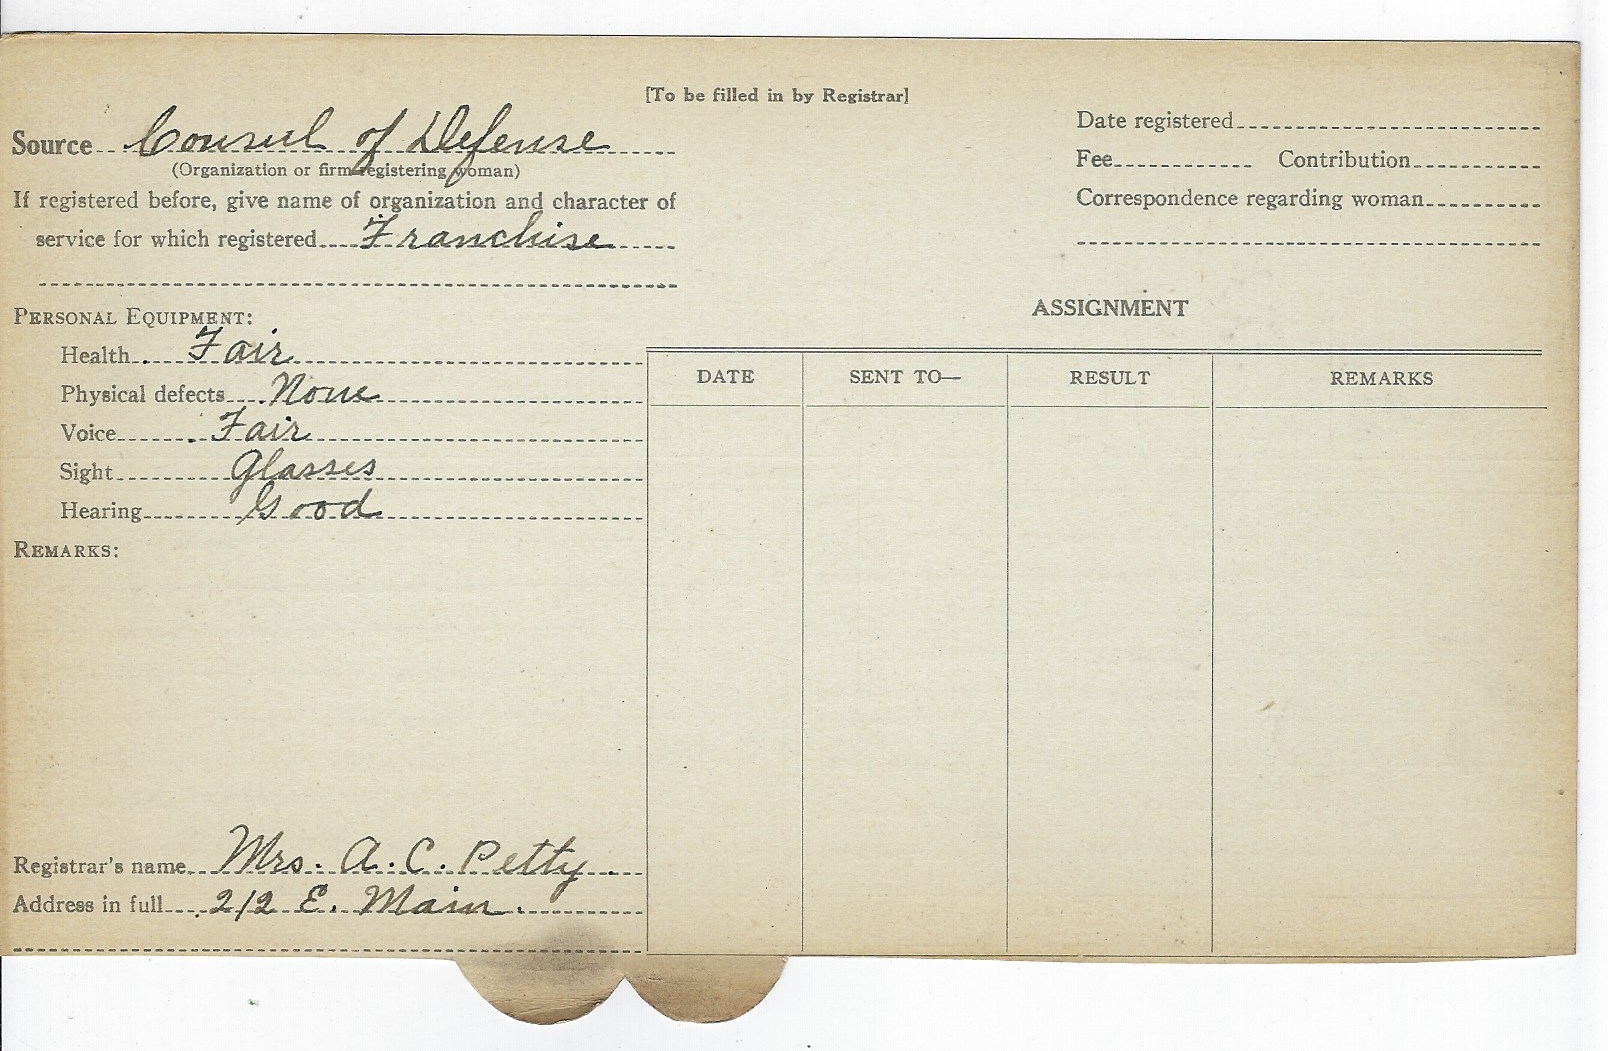 [To be filled in by Registrar]
Source Consul of Defense
(Organization or firm registering woman)
If registered before, give name of organization and character of
service for which registered Franchise
PERSONAL EQUIPMENT:
Health Fair
Physical defects None
Voice Fair
Sight Glasses
Hearing Good
REMARKS:
Registrar's name Mrs. A. C. Petty
Address in full 212 E. Main.
Date registered
Fee Contribution
Correspondence regarding woman
ASSIGNMENT
DATE SENT TO— RESULT REMARKS